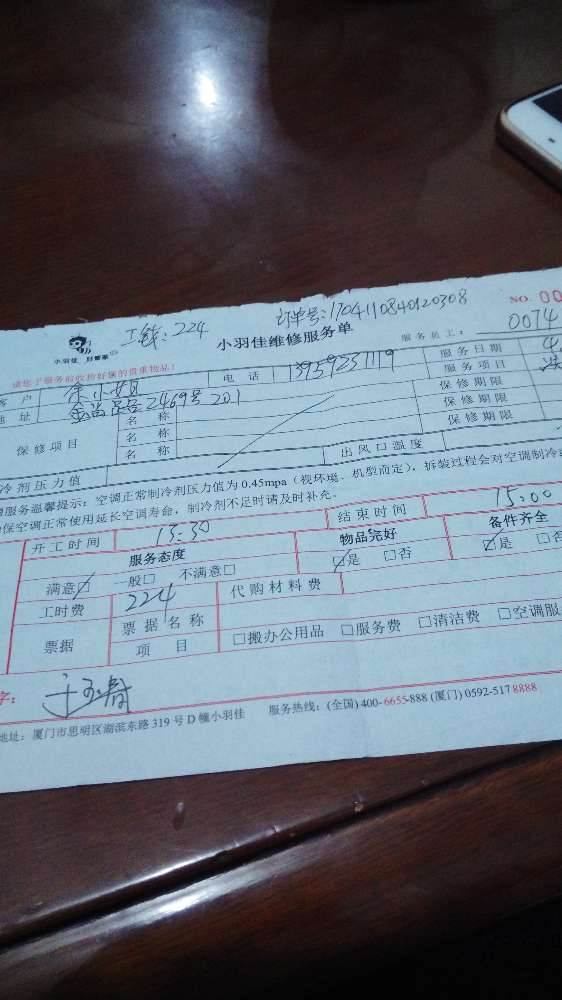 工钱:224 订单号:1704110840120308
小羽佳 NO.00
小羽佳维修服务单 服务员工: 0074
请您于服务前收拾好您的贵重物品!
客户 余小姐 电话 13959231119 服务日期
地址 2469号201 服务项目
保修项目 名称 保修期限
名称 保修期限
名称 保修期限
冷剂压力值 出风口温度
服务温馨提示:空调正常制冷剂压力值为0.45mpa(视环境、机型而定),拆装过程会对空调制冷
保空调正常使用延长空调寿命,制冷剂不足时请及时补充。
开工时间 13:30 结束时间 15:00
服务态度 物品完好 备件齐全
满意☑ 一般□ 不满意□ ☑是 □否 ☑是 □否
工时费 224 代购材料费
票据 票据名称
项目 □搬办公用品 □服务费 □清洁费 □空调服
字:
地址:厦门市思明区湖滨东路319号D幢小羽佳 服务热线:(全国)400-6655-888 (厦门) 0592-5178888